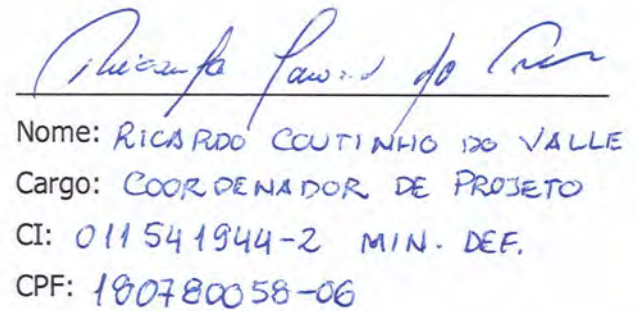 Nome: RICARDO COUTINHO DO VALLE
Cargo: COORDENADOR DE PROJETO
CI: 011541944-2 MIN. DEF.
CPF: 180780058-06